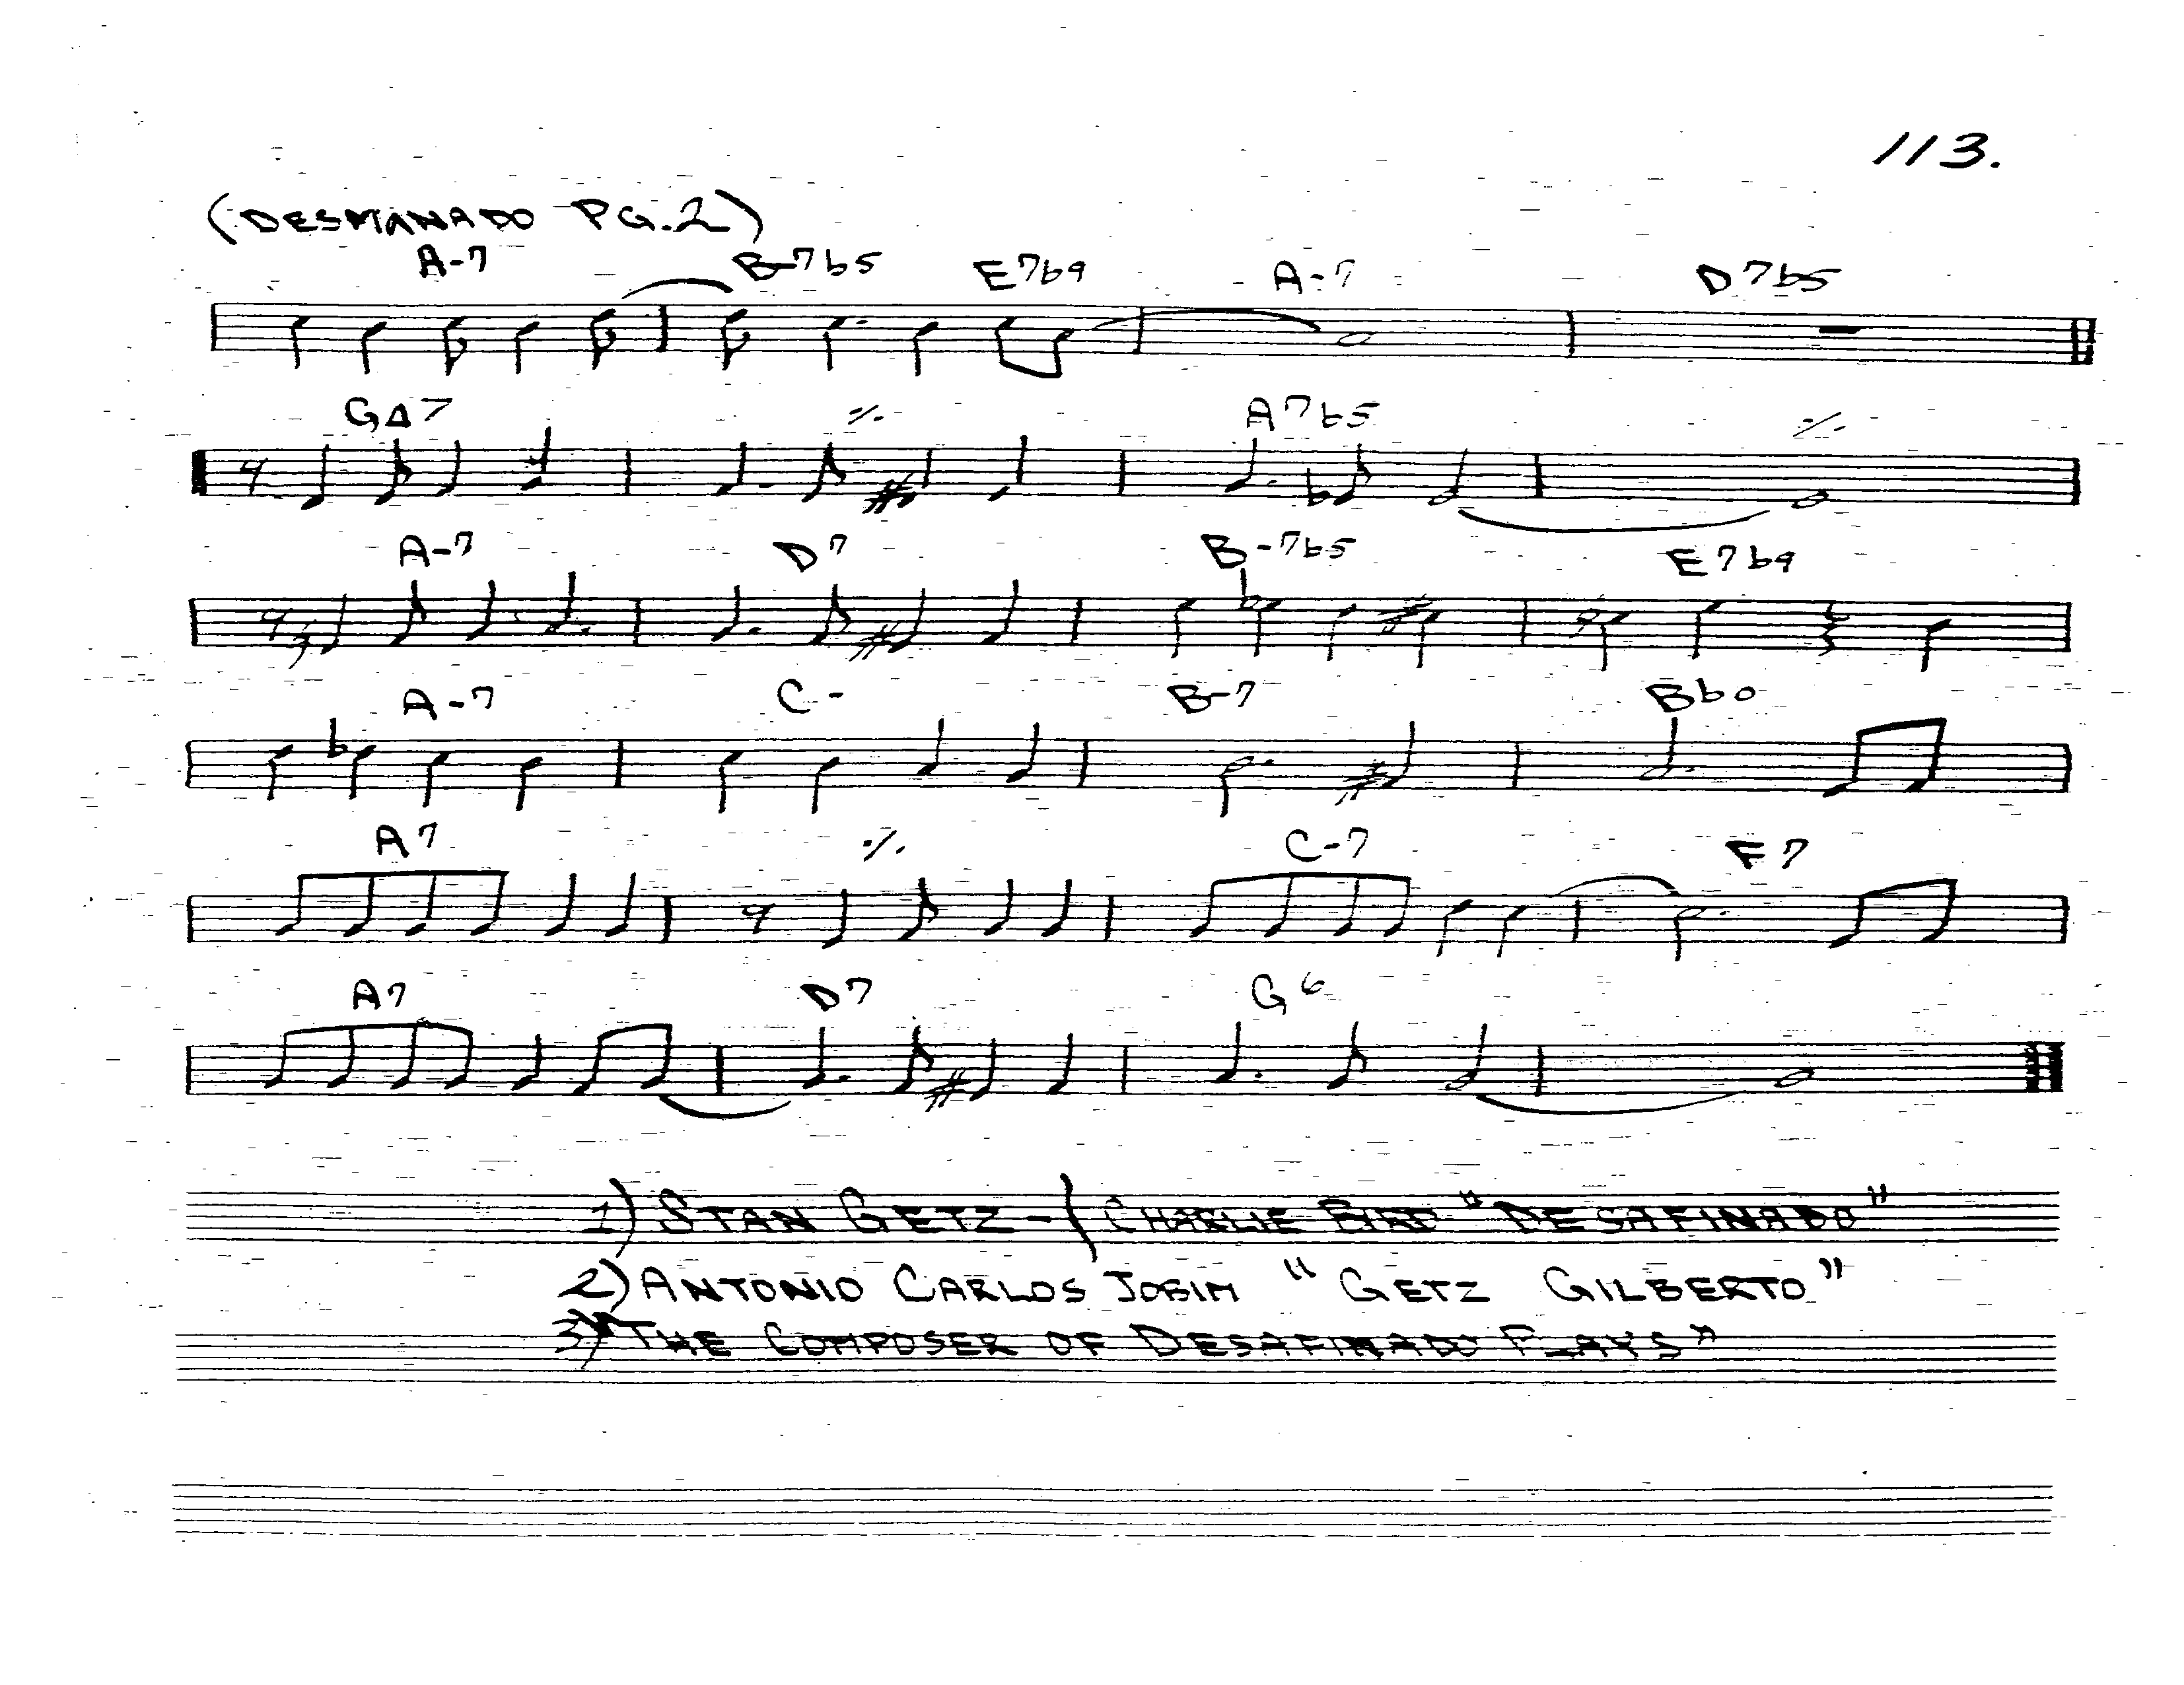 113.
(DESAFINADO PG.2)
A-7 B-7b5 E7b9 A-7 D7b5
G△7 ٪ A7b5 ٪
A-7 D7 B-7b5 E7b9
A-7 C- B-7 Bbo
A7 ٪ C-7 F7
A7 D7 G6
1) STAN GETZ - CHARLIE BIRD "DESAFINADO"
2) ANTONIO CARLOS JOBIM "GETZ GILBERTO"
3) "THE COMPOSER OF DESAFINADO PLAYS"